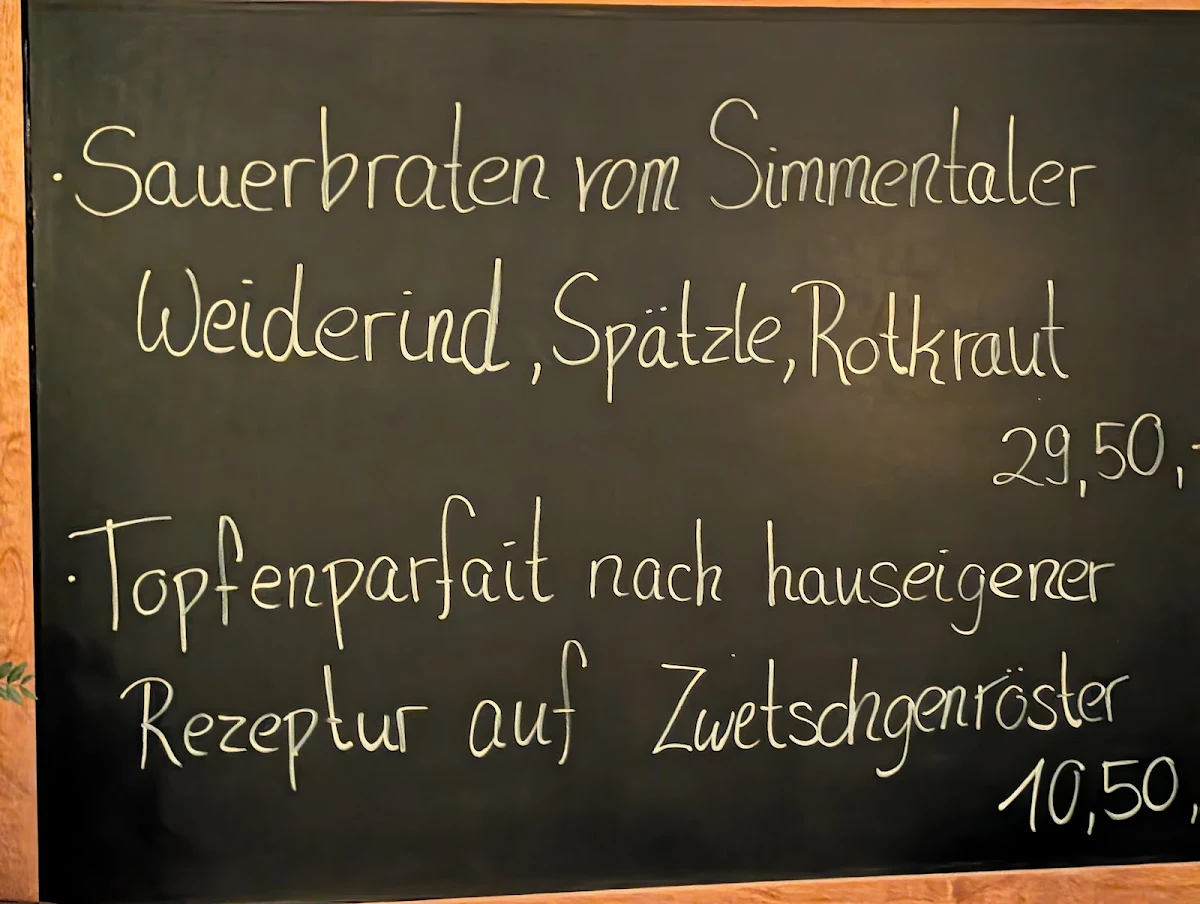 · Sauerbraten vom Simmentaler
Weiderind, Spätzle, Rotkraut
29,50,-
· Topfenparfait nach hauseigener
Rezeptur auf Zwetschgenröster
10,50,